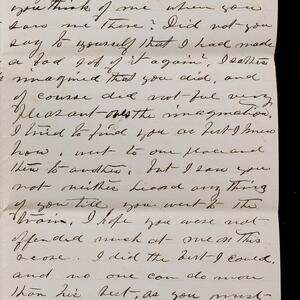 you think of me when you
saw me there? Did not you
say to yourself that I had made
a bad job of it again? I rather
imagined that you did, and
of course did not feel very
pleasant over the imagination,
I tried to find you as best I knew
how, went to one place and
then to another, but I saw you
not neither heard any thing
of you till you went to the
train. I hope you were not
offended much at me on this
score. I did the best I could,
and no one can do more
than his best, as you must